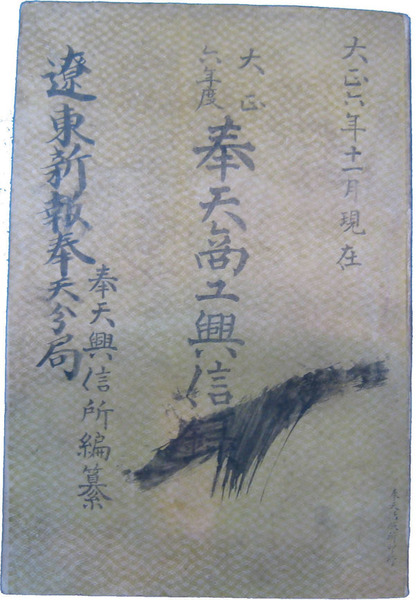 大正六年十一月現在
大正
六年度
奉天商工興信録
奉天興信所編纂
遼東新報奉天分局